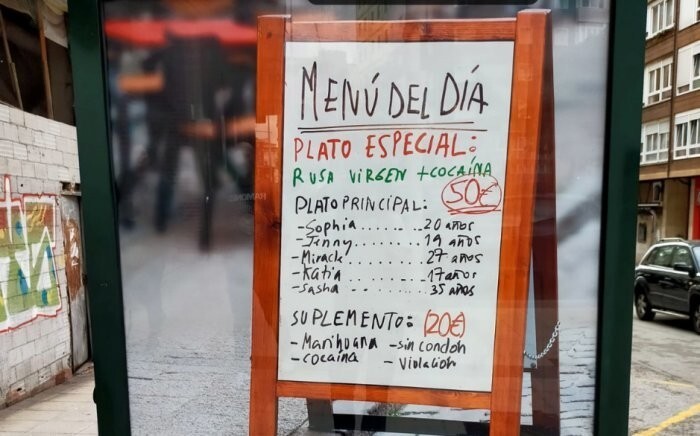 MENÚ DEL DÍA
PLATO ESPECIAL:
RUSA VIRGEN + COCAÍNA
50€
PLATO PRINCIPAL:
- Sophia ........ 20 años
- Jenny ........ 19 años
- Mirack ........ 27 años
- Katia ........ 17 años
- Sasha ........ 35 años
SUPLEMENTO: (20€)
- Marihuana - sin condon
- cocaína - violacion